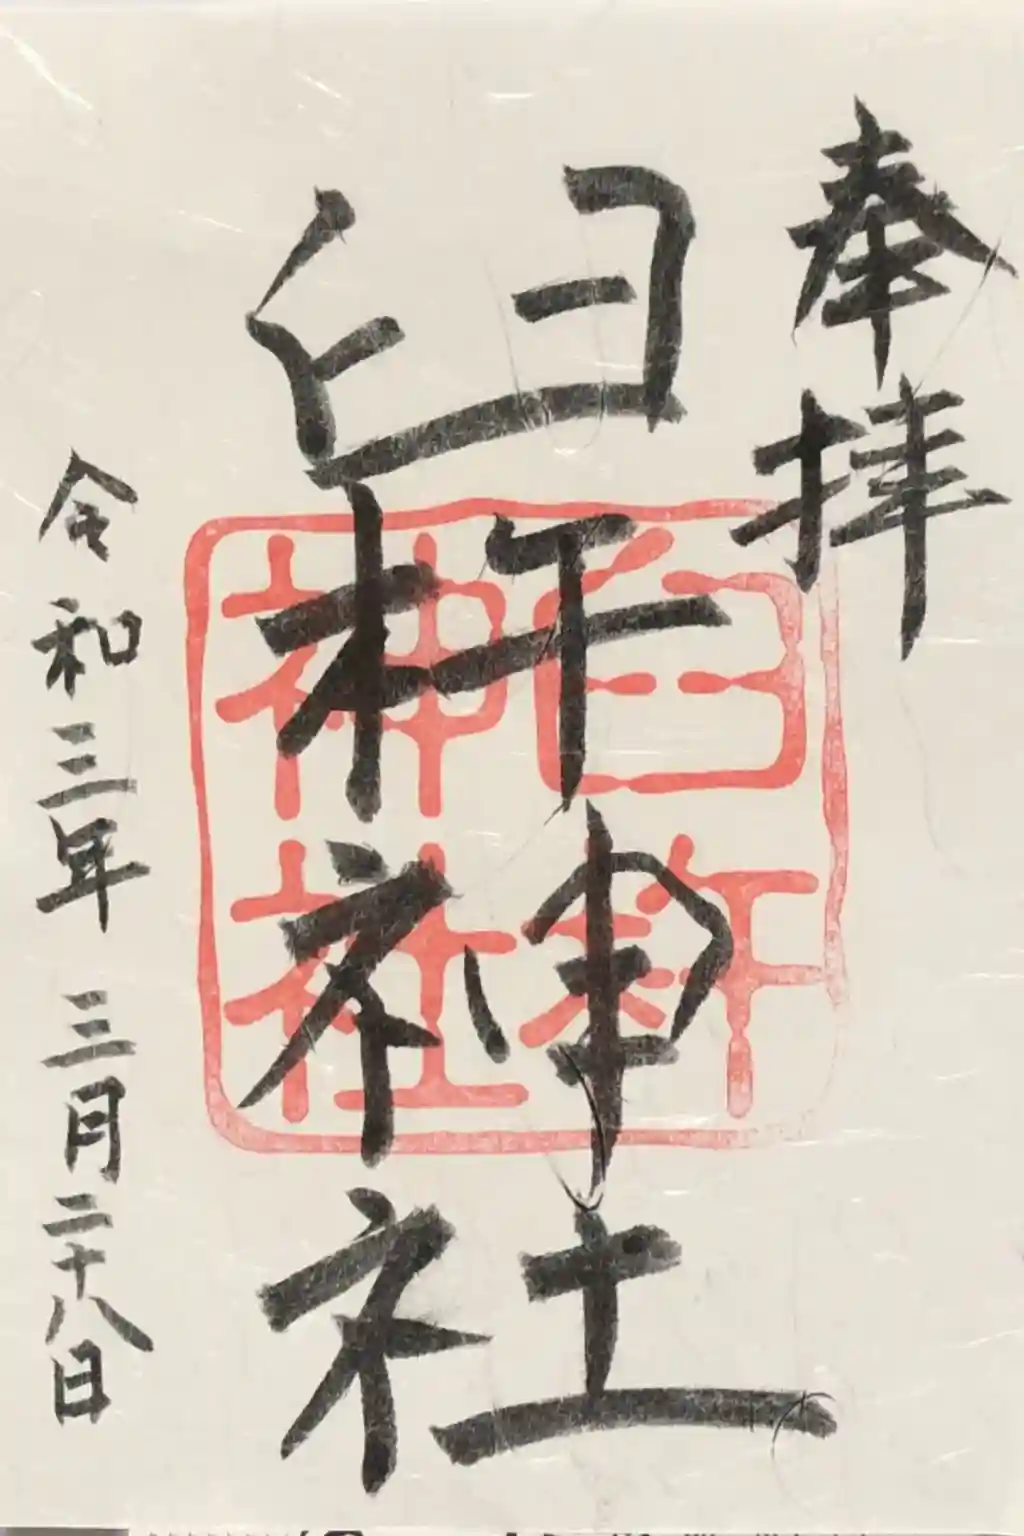 奉拝
臼杵神社
臼杵神社
令和三年 三月二十八日